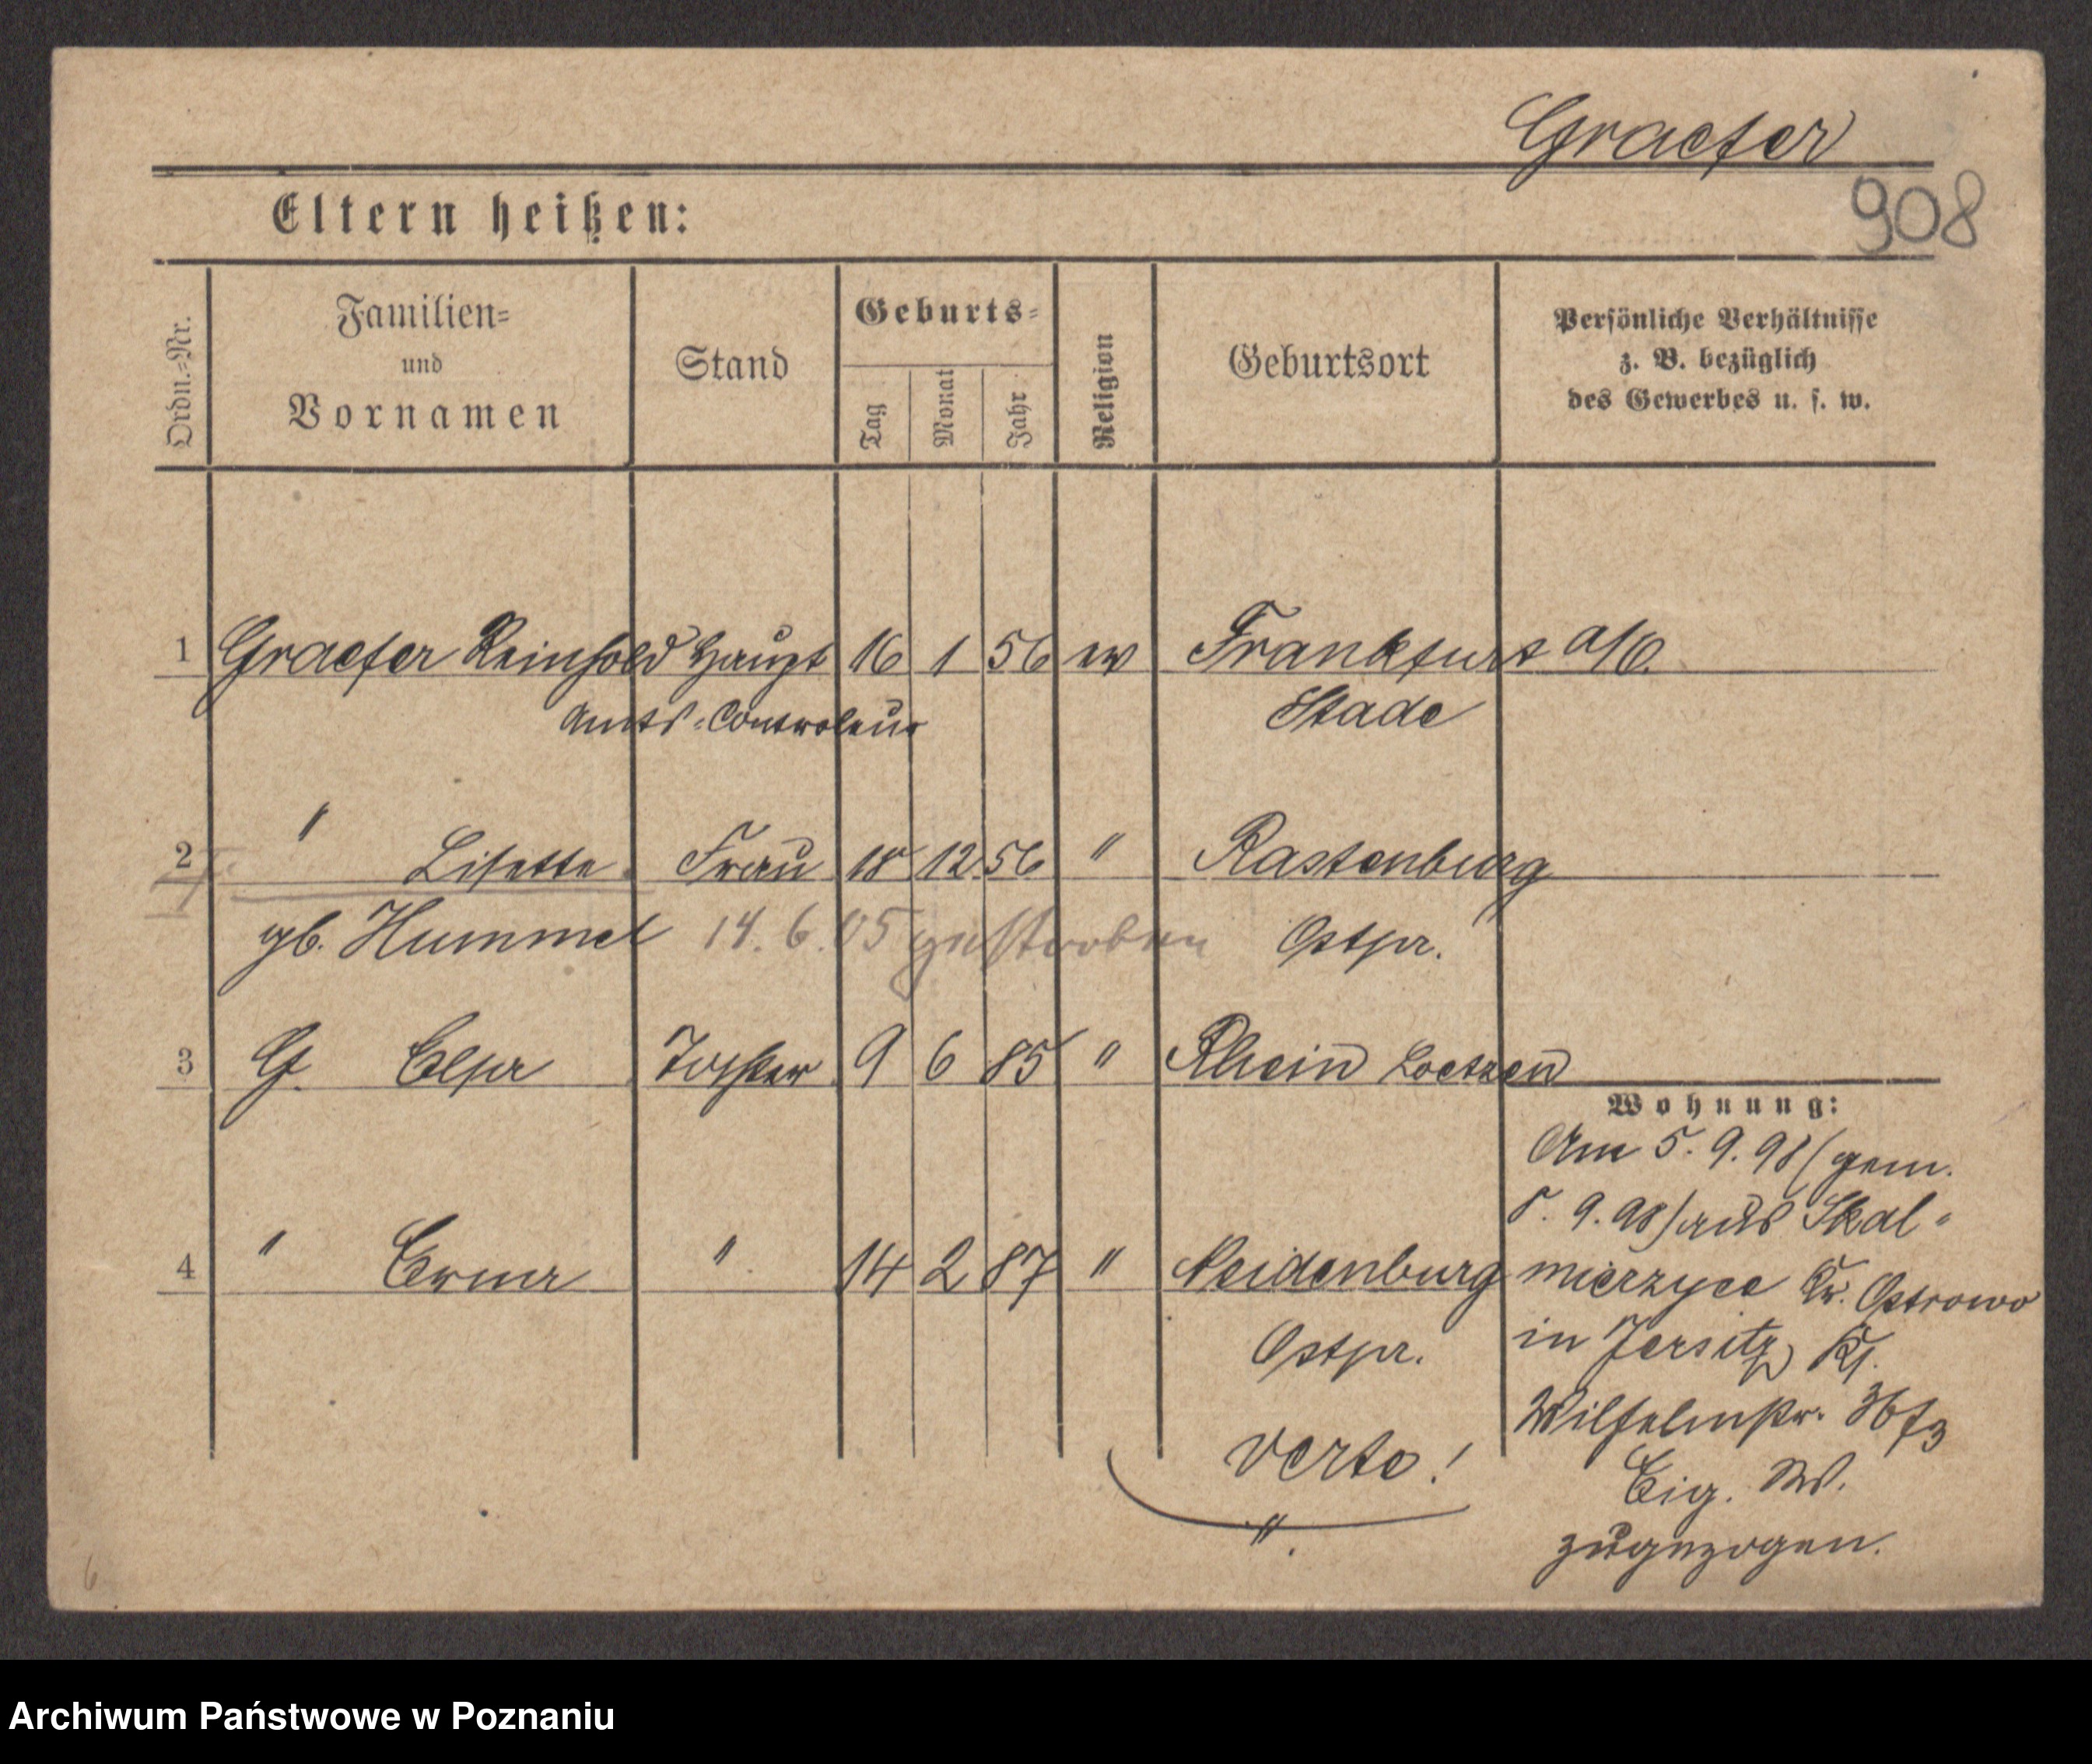 Graefer
908
Eltern heißen:
Ordn.=Nr.
Familien=
und
Vornamen
Stand
Geburts=
Tag
Monat
Jahr
Religion
Geburtsort
Persönliche Verhältnisse
z. B. bezüglich
des Gewerbes u. s. w.
1 Graefer Reinhold Haupt 16 1 56 ev Frankfurt a/O.
Amts-Controleur Stade
2 " Lisette Frau 18 12 56 " Rastenburg
gb. Hummel 14. 6. 05 gestorben Ostpr.
3 G. Elsa Tochter 9 6 85 " Rhein Loetzen
Wohnung:
Am 5. 9. 98 (gem.
5. 9. 98) aus Skal-
4 " Erna " 14 2 87 " Neidenburg mierzyce Kr. Ostrowo
Ostpr. in Jersitz
Wilhelmstr. 36
verte! Eig. W.
zugezogen.
6
Archiwum Państwowe w Poznaniu